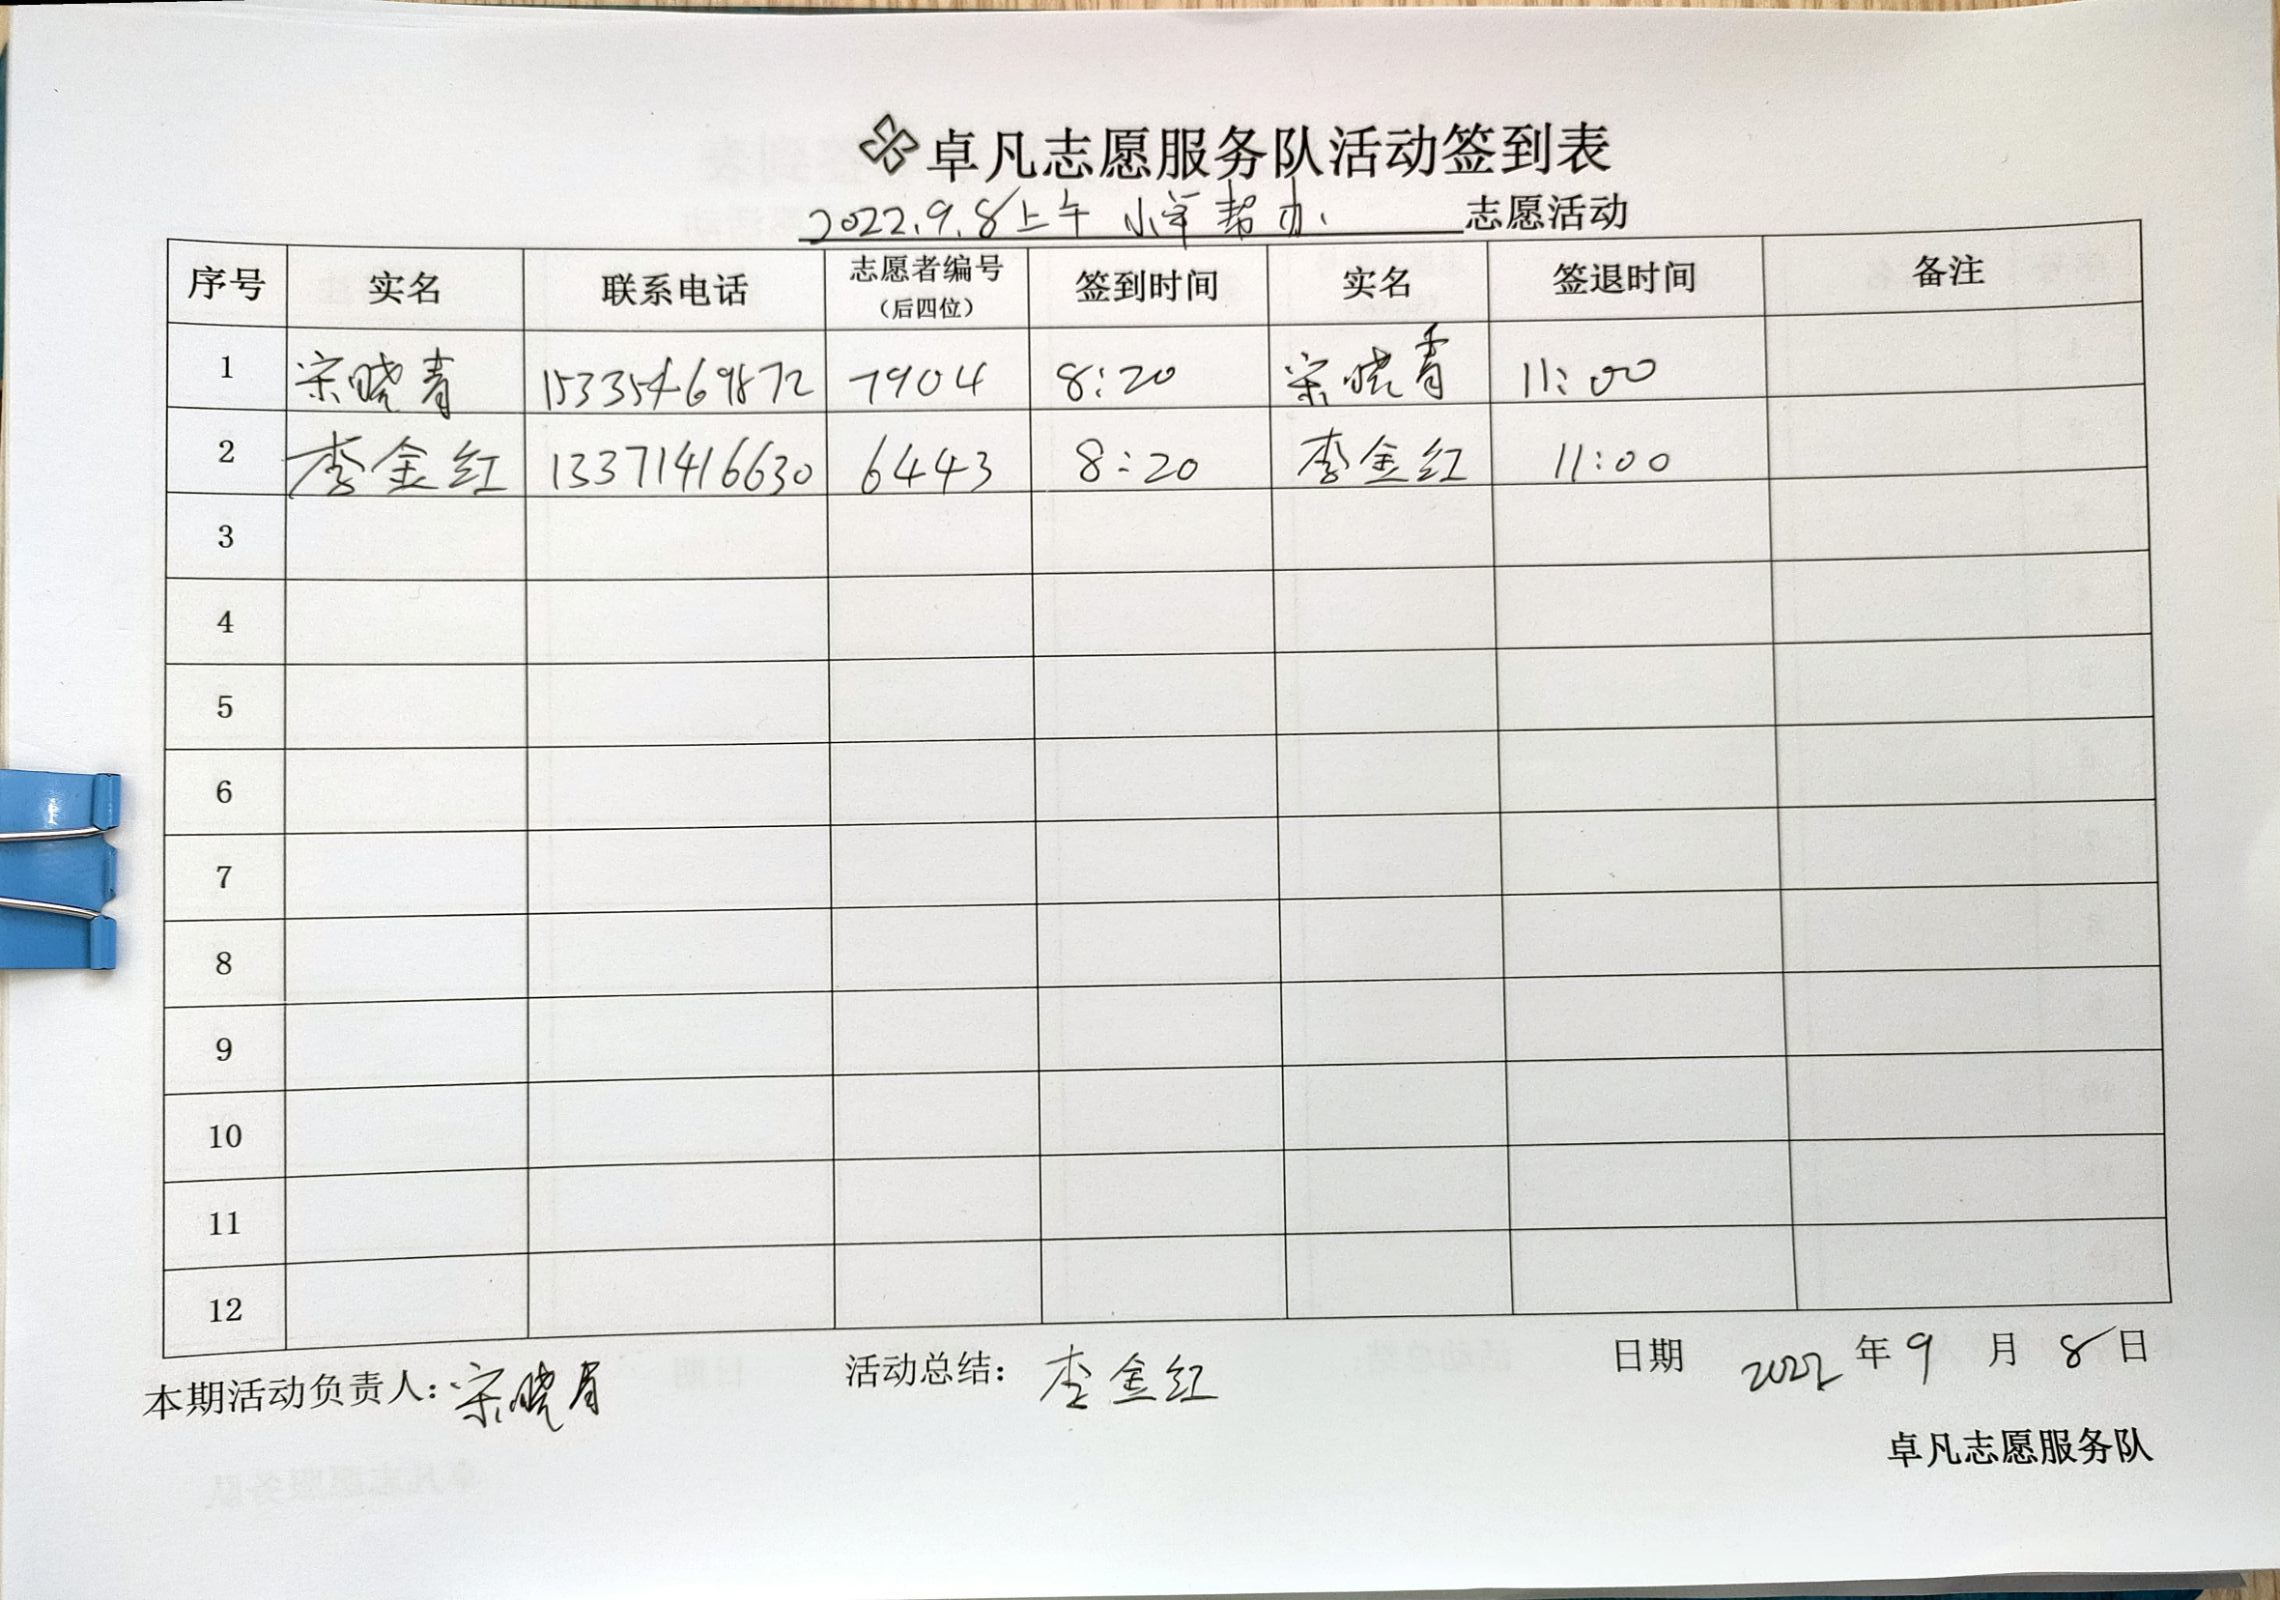 卓凡志愿服务队活动签到表
2022.9.8上午 小羊帮办、 志愿活动
序号 实名 联系电话 志愿者编号（后四位） 签到时间 实名 签退时间 备注
1 宋晓青 15335469872 7904 8:20 宋晓青 11:00
2 李金红 13371416630 6443 8:20 李金红 11:00
3
4
5
6
7
8
9
10
11
12
本期活动负责人：宋晓青 活动总结：李金红 日期 2022 年 9 月 8 日
卓凡志愿服务队